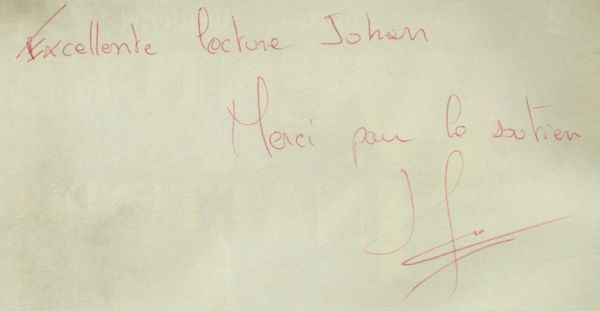 Excellente lecture Johan
Merci pour le soutien